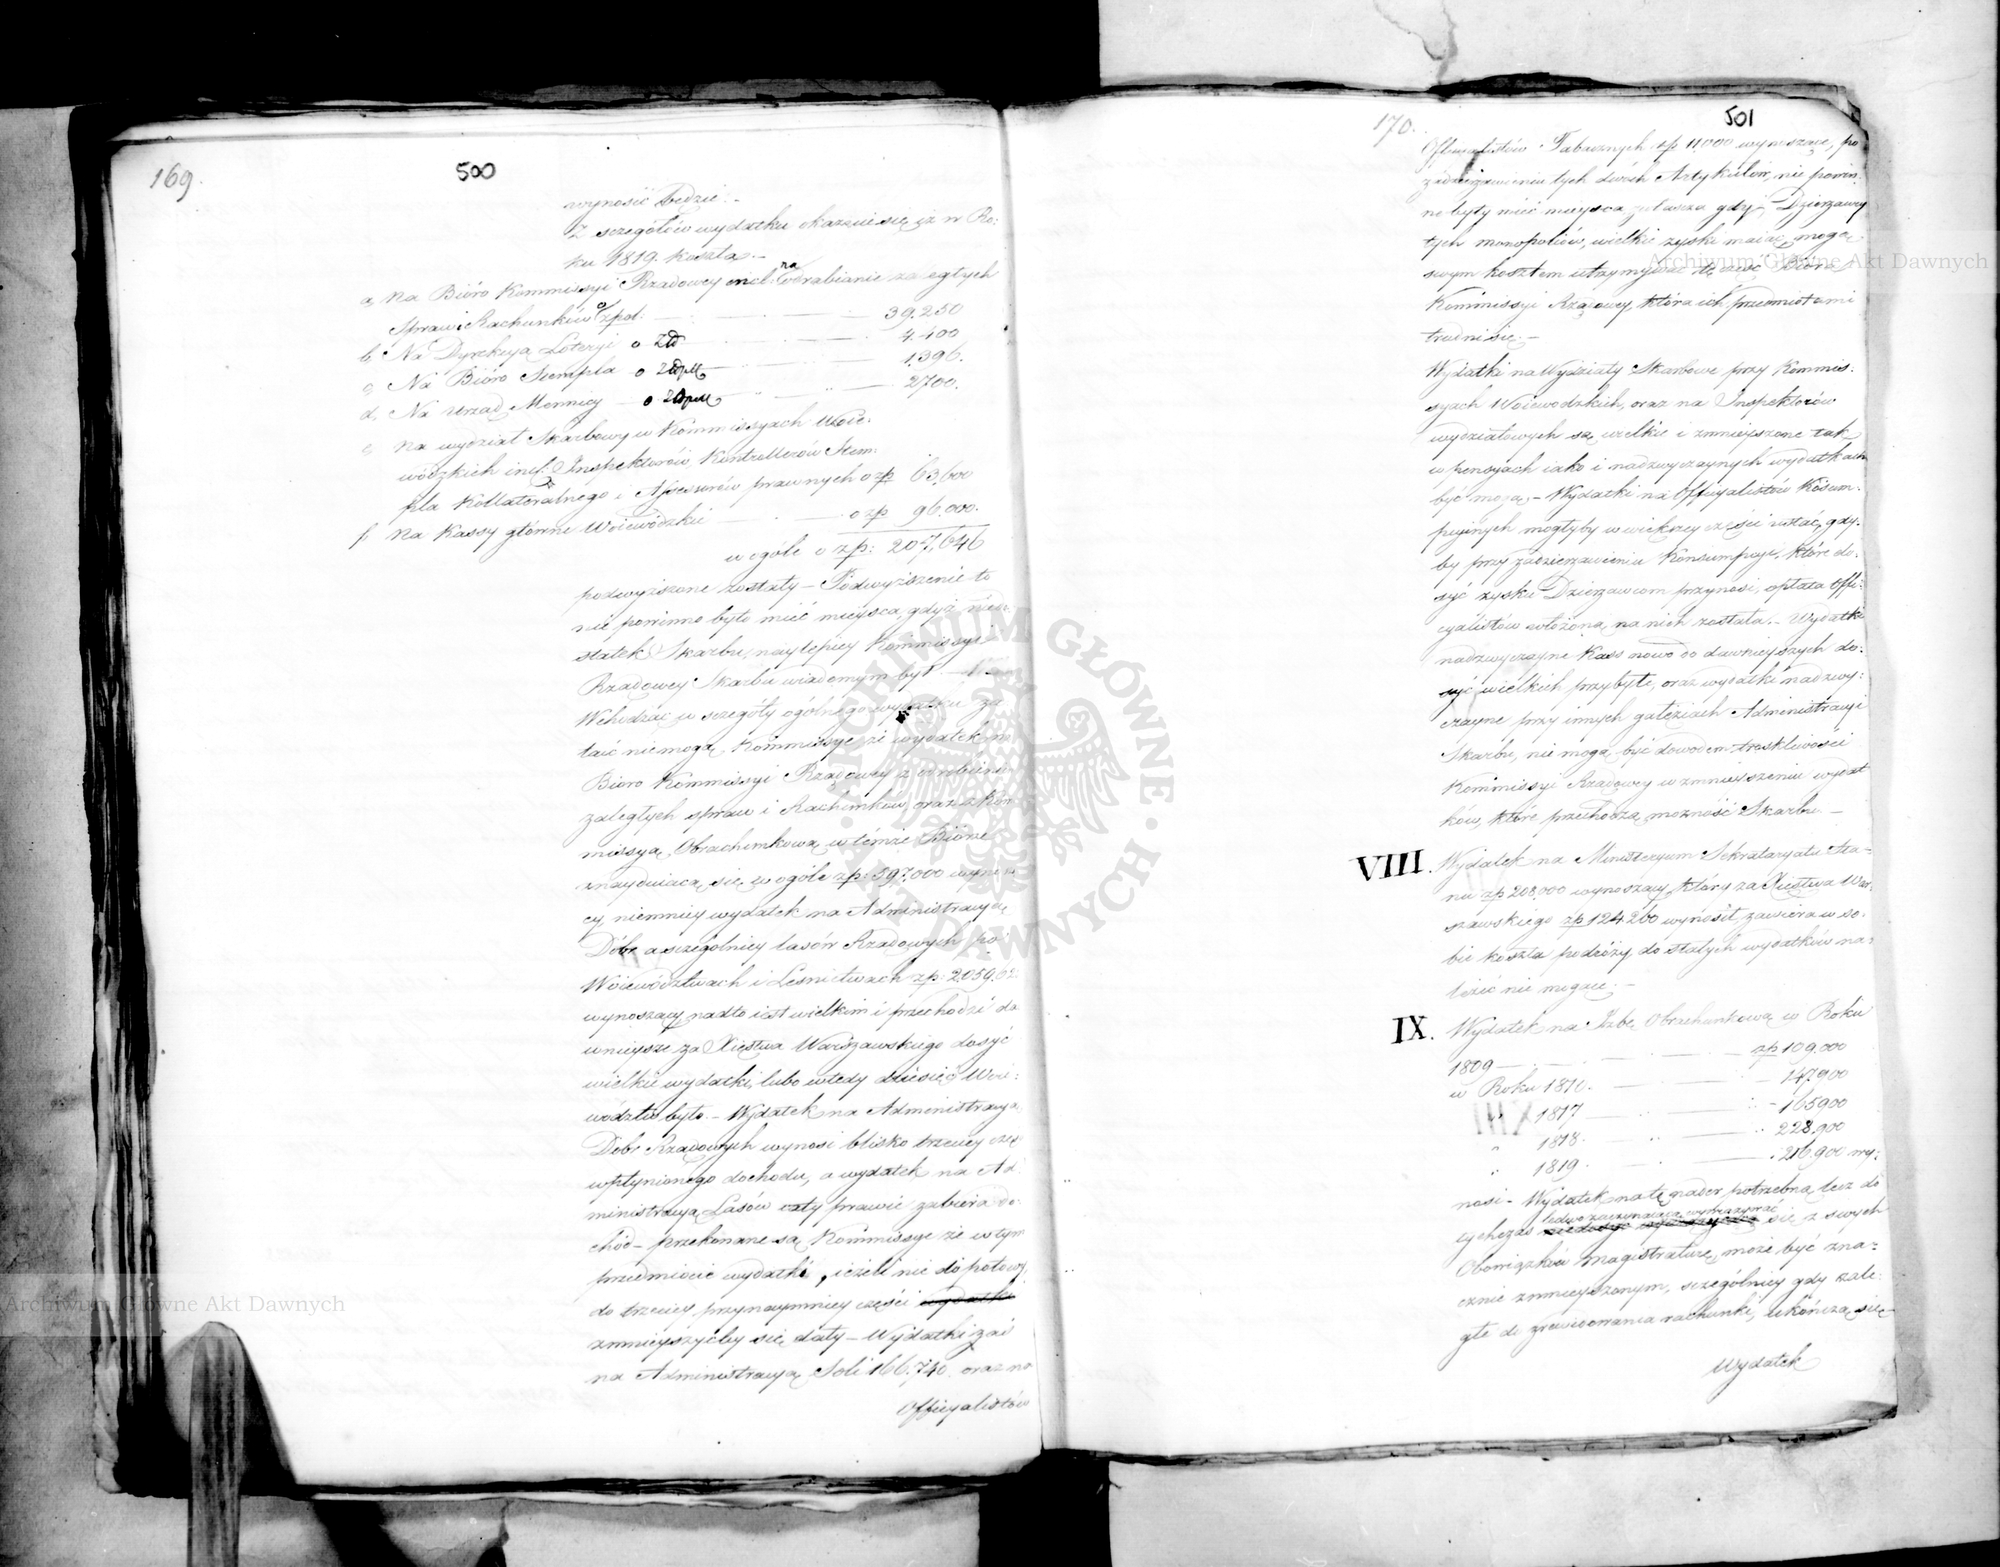 169.
500
wynosić będzie.-
Z szczegółów wydatku okazuie się iż w Ro-
ku 1819. koszta.-
a, Na Biuro Kommissyi Rządowey incl: na odrabianie zaległych
Spraw i Rachunków o zpol: 39.250
b, Na Dyrekcyą Loteryi o Zł 4.400
c, Na Biuro Stempla o 1.396.
d, Na Urząd Mennicy o 2700.
e, Na wydział Skarbowy w Kommissyach Woie-
wódzkich incl: Inspektorów, Kontrollerów Stem-
pla Kollateralnego i Assessorów prawnych o zp 63,600
f, Na Kassy główne Woiewódzkie o zp 96,000.
w ogóle o zp: 207,646
podwyższone zostały – Podwyższenie to
nie powinno było mieć mieysca, gdyż niedo-
statek Skarbu, naylepiey Kommissyi
Rządowey Skarbu wiadomym był
Wchodząc w szczegóły ogólnego wydatku za
taić niemogą Kommissye, że wydatek na
Biuro Kommissyi Rządowey z odrobieniem
zaległych spraw i Rachunków, oraz z Kom
missyą Obrachunkową w témże Biurze
znayduiącą się w ogóle zp: 597.000 wynoszą
cy, niemniey wydatek na Administracyą
Dóbr a szczególniey lasów Rządowych po
Woiewództwach i Leśnictwach zp: 2,059,62
wynoszący, nadto iest wielkim i przechodzi da
wnieysze za Xięstwa Warszawskiego dosyć
wielkie wydatki, lubo wtedy dziesięć Woie-
wództw było. – Wydatek na Administracyą
Dóbr Rządowych wynosi blisko trzeciey częś
wpłynionego dochodu, a wydatek na Ad-
ministracyą Lasów cały prawie zabiera do-
chód – przekonane są Kommissye że w tym
przedmiocie wydatki, ieżeli nie do połowy,
do trzeciey przynaymniey części wydatki
zmnieyszyćby się dały – Wydatki zaś
na Administracyą Soli 166.740. oraz na
Officyalistów
170.
501
Officyalistów Tabacznych zp 11.000 wynoszące, po
zadzierżawieniu tych dwóch Artykułów, nie powin-
ne były mieć mieysca zwłaszcza gdy Dzierżawcy
tych monopoliów, wielkie zyski maiąc, mogą
swym kosztem utrzymywać tę część Biura
Kommissyi Rządowey, która ich przedmiotami
trudni się.-
Wydatki na Wydziały Skarbowe przy Kommis-
syach Woiewodzkich, oraz na Inspektorów
wydziałowych są wielkie i zmnieyszone tak
w pensyach iako i nadzwyczaynych wydatkach
być mogą. – Wydatki na Officyalistów Kosum-
pcyinych mogłyby w większey części ustać, gdy-
by przy zadzierżawieniu Konsumpcyi, które do-
syć zysku Dzierżawcom przynosi, opłata Offi-
cyalistów włożoną na nich została. – Wydatki
nadzwyczayne Kass nowo do dawnieyszych do-
syć wielkich przybyłe, oraz wydatki nadzwy-
czayne przy innych gałęziach Administracyi
Skarbu, nie mogą być dowodem troskliwości
Kommissyi Rządowey w zmnieyszeniu wydat
ków, które przechodzą możność Skarbu –
VIII. Wydatek na Ministeryum Sekretaryatu Sta-
nu zp 208.000 wynoszący, który za Xięstwa War-
szawskiego zp 124.260 wynosił, zawiera w so-
bie koszta podróży do stałych wydatków na-
leżeć nie mogące.-
IX. Wydatek na Izbę Obrachunkową w Roku
1809 zp 109.000
w Roku 1810. 147.900
" 1817 165900
" 1818. 228.900
" 1819. 216.900 wy-
nosi – Wydatek na tę nader potrzebną, lecz do
tychczas ledwo zaczynaiącą wywiązywać się z swych
Obowiązków Magistraturę, może być zna-
cznie zmnieyszonym, szczególniey gdy zale-
głe do zrewidowania rachunki, ukończą się –
Wydatek
ARCHIWUM GŁÓWNE AKT DAWNYCH
Archiwum Główne Akt Dawnych
Archiwum Główne Akt Dawnych